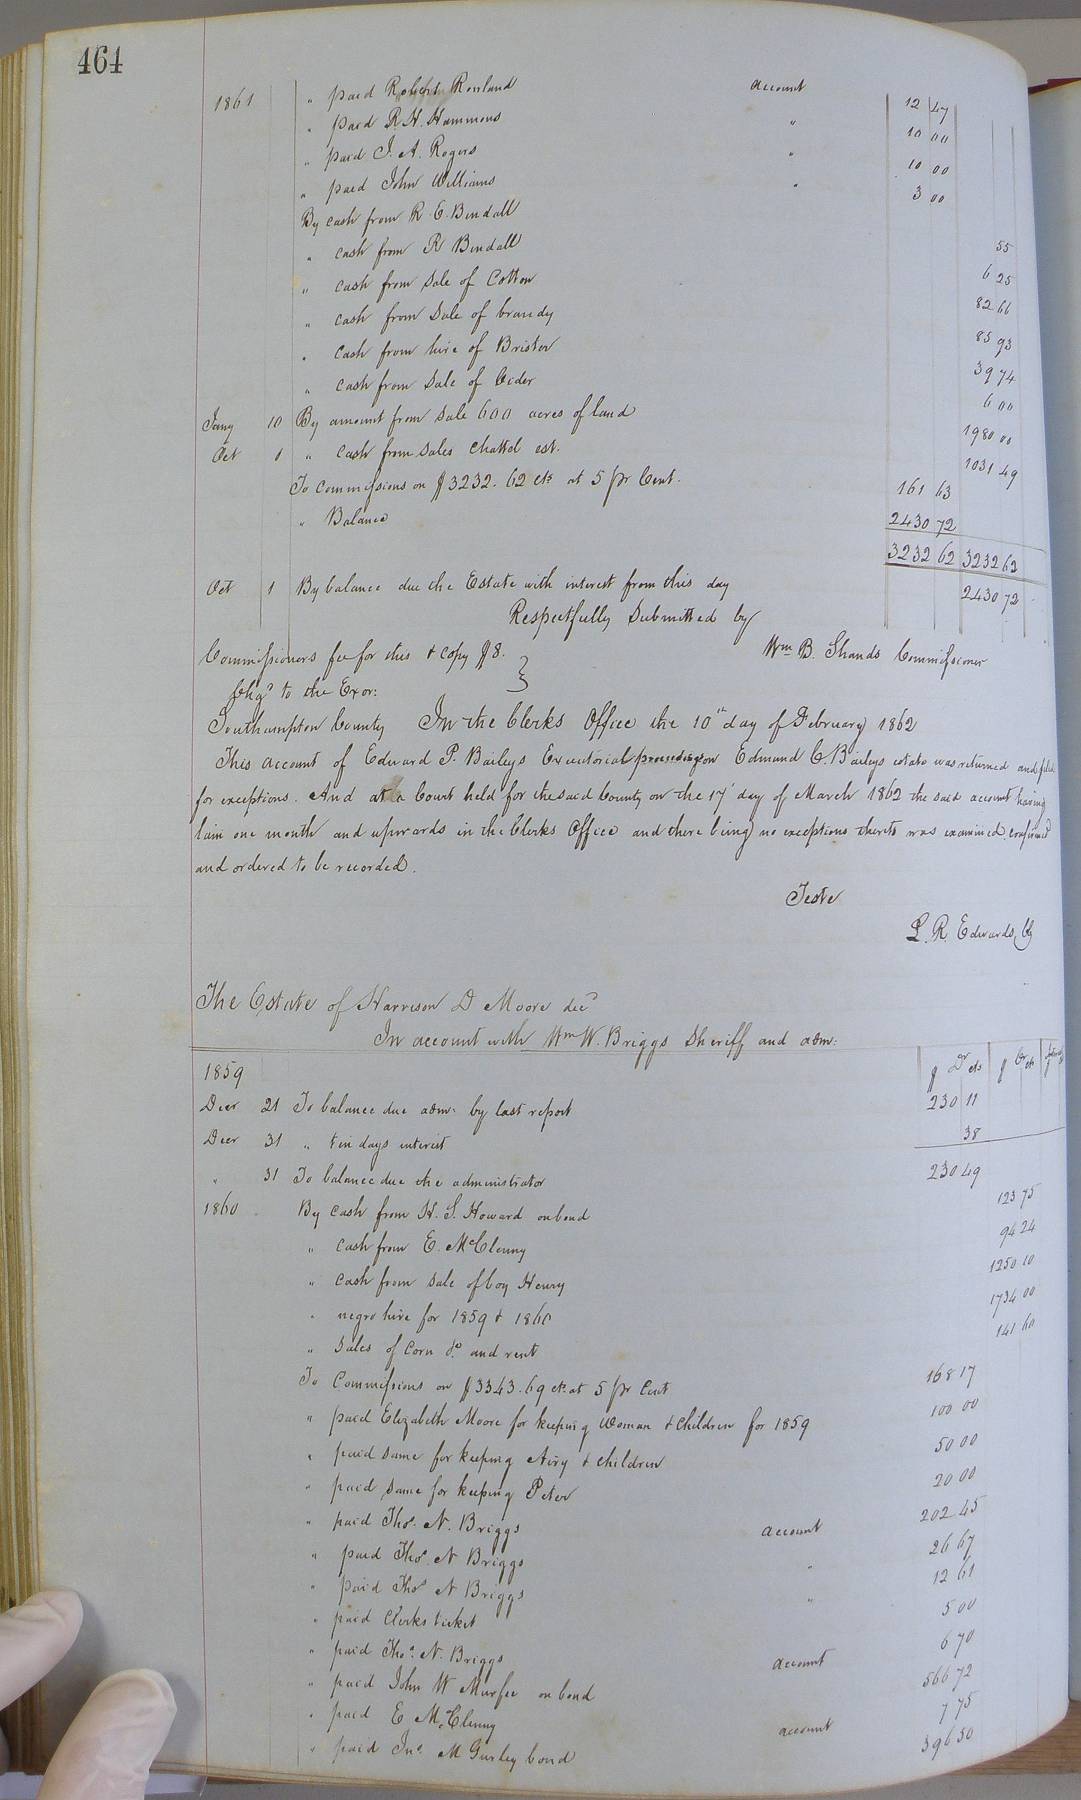 464
1861 " paid Robert Rowland account 12 47
" paid R. H. Hammons " 10 00
" paid J. A. Rogers " 10 00
" paid John Williams " 3 00
By cash from R. E. Bendall 55
" cash from R Bendall 6 25
" cash from Sale of Cotton 82 66
" cash from Sale of brandy 85 93
" cash from hire of Bristor 39 74
" cash from Sale of Cider 6 00
Jany 10 By amount from sale 600 acres of land 1980 00
Oct 1 " cash from sales chattel est. 1031 49
To Commissions on $3232.62 cts at 5 pr Cent. 161 63
" Balance 2430 72
3232 62 3232 62
Oct 1 By balance due the Estate with interest from this day 2430 72
Respectfully Submitted by
Wm B. Shands Commissioner
Commissioners fee for this & copy $8.
Chgd to the Exor:
Southampton County In the Clerks Office the 10th day of February 1862
This account of Edward P. Baileys Executorial proceedings on Edmund C. Baileys estate was returned and filed
for exceptions. And at a Court held for the said County on the 17 day of March 1862 the said account having
lain one month and upwards in the Clerks Office and there being no exceptions thereto was examined, confirmed
and ordered to be recorded.
Teste
L. R. Edwards, Clk
The Estate of Harrison D Moore decd
In account with Wm W. Briggs Sheriff and adm:
$ Dr cts $ Cr cts
1859
Decr 21 To balance due adm: by last report 230 11
Decr 31 " ten days interest 38
" 31 To balance due the administrator 230 49
1860 By cash from H. S. Howard on bond 123 75
" cash from E. McClenny 94 24
" cash from sale of boy Henry 1250 10
" negro hire for 1859 & 1860 1734 00
" Sales of corn &c and rent 141 60
To Commissions on $3343.69 cts at 5 pr Cent 168 17
" paid Elizabeth Moore for keeping woman & children for 1859 100 00
" paid same for keeping Airy & children 50 00
" paid same for keeping Peter 20 00
" paid Thos. N. Briggs account 202 45
" paid Thos N Briggs " 26 67
" paid Thos N Briggs " 12 61
" paid Clerks ticket 5 00
" paid Thos. N. Briggs account 6 70
" paid John W Murfee on bond 566 72
" paid E McClenny account 7 75
" paid Jno M Gurley bond 396 50